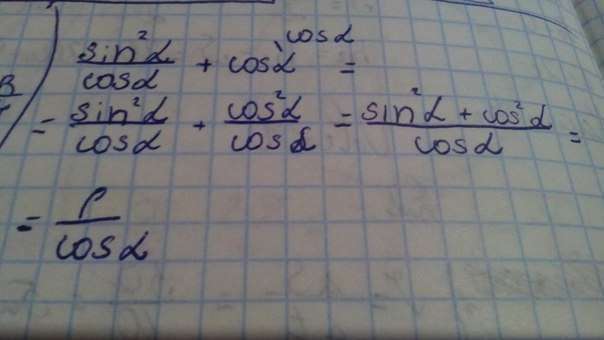 sin²α/cosα + cosα \cosα =
= sin²α/cosα + cos²α/cosα = (sin²α + cos²α)/cosα =
= 1/cosα